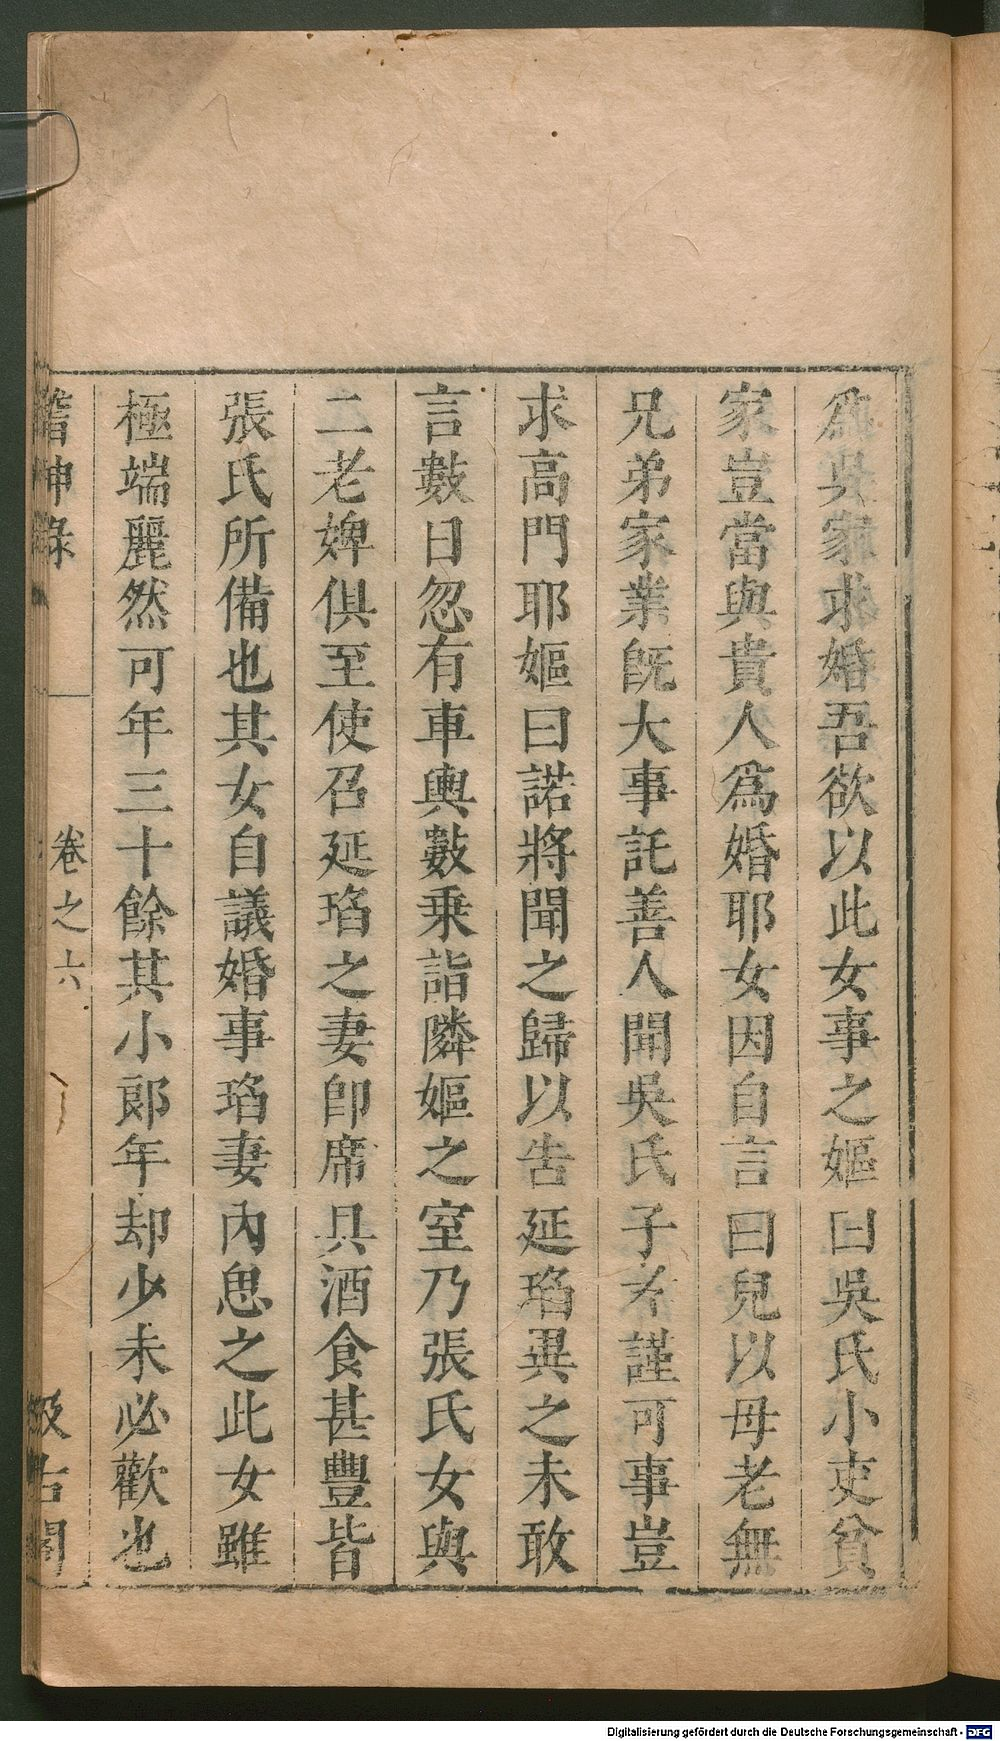 爲吳家求婚吾欲以此女事之嫗曰吳氏小吏貧
家豈當與貴人爲婚耶女因自言曰兒以母老無
兄弟家業旣大事託善人聞吳氏子孝謹可事豈
求高門耶嫗曰諾將聞之歸以告延瑫異之未敢
言數日忽有車輿數乗詣隣嫗之室乃張氏女與
二老婢俱至使召延瑫之妻卽席具酒食甚豐皆
張氏所備也其女自議婚事瑫妻內思之此女雖
極端麗然可年三十餘其小郞年却少未必歡也
稽神錄
卷之六
汲古閣
Digitalisierung gefördert durch die Deutsche Forschungsgemeinschaft - DFG